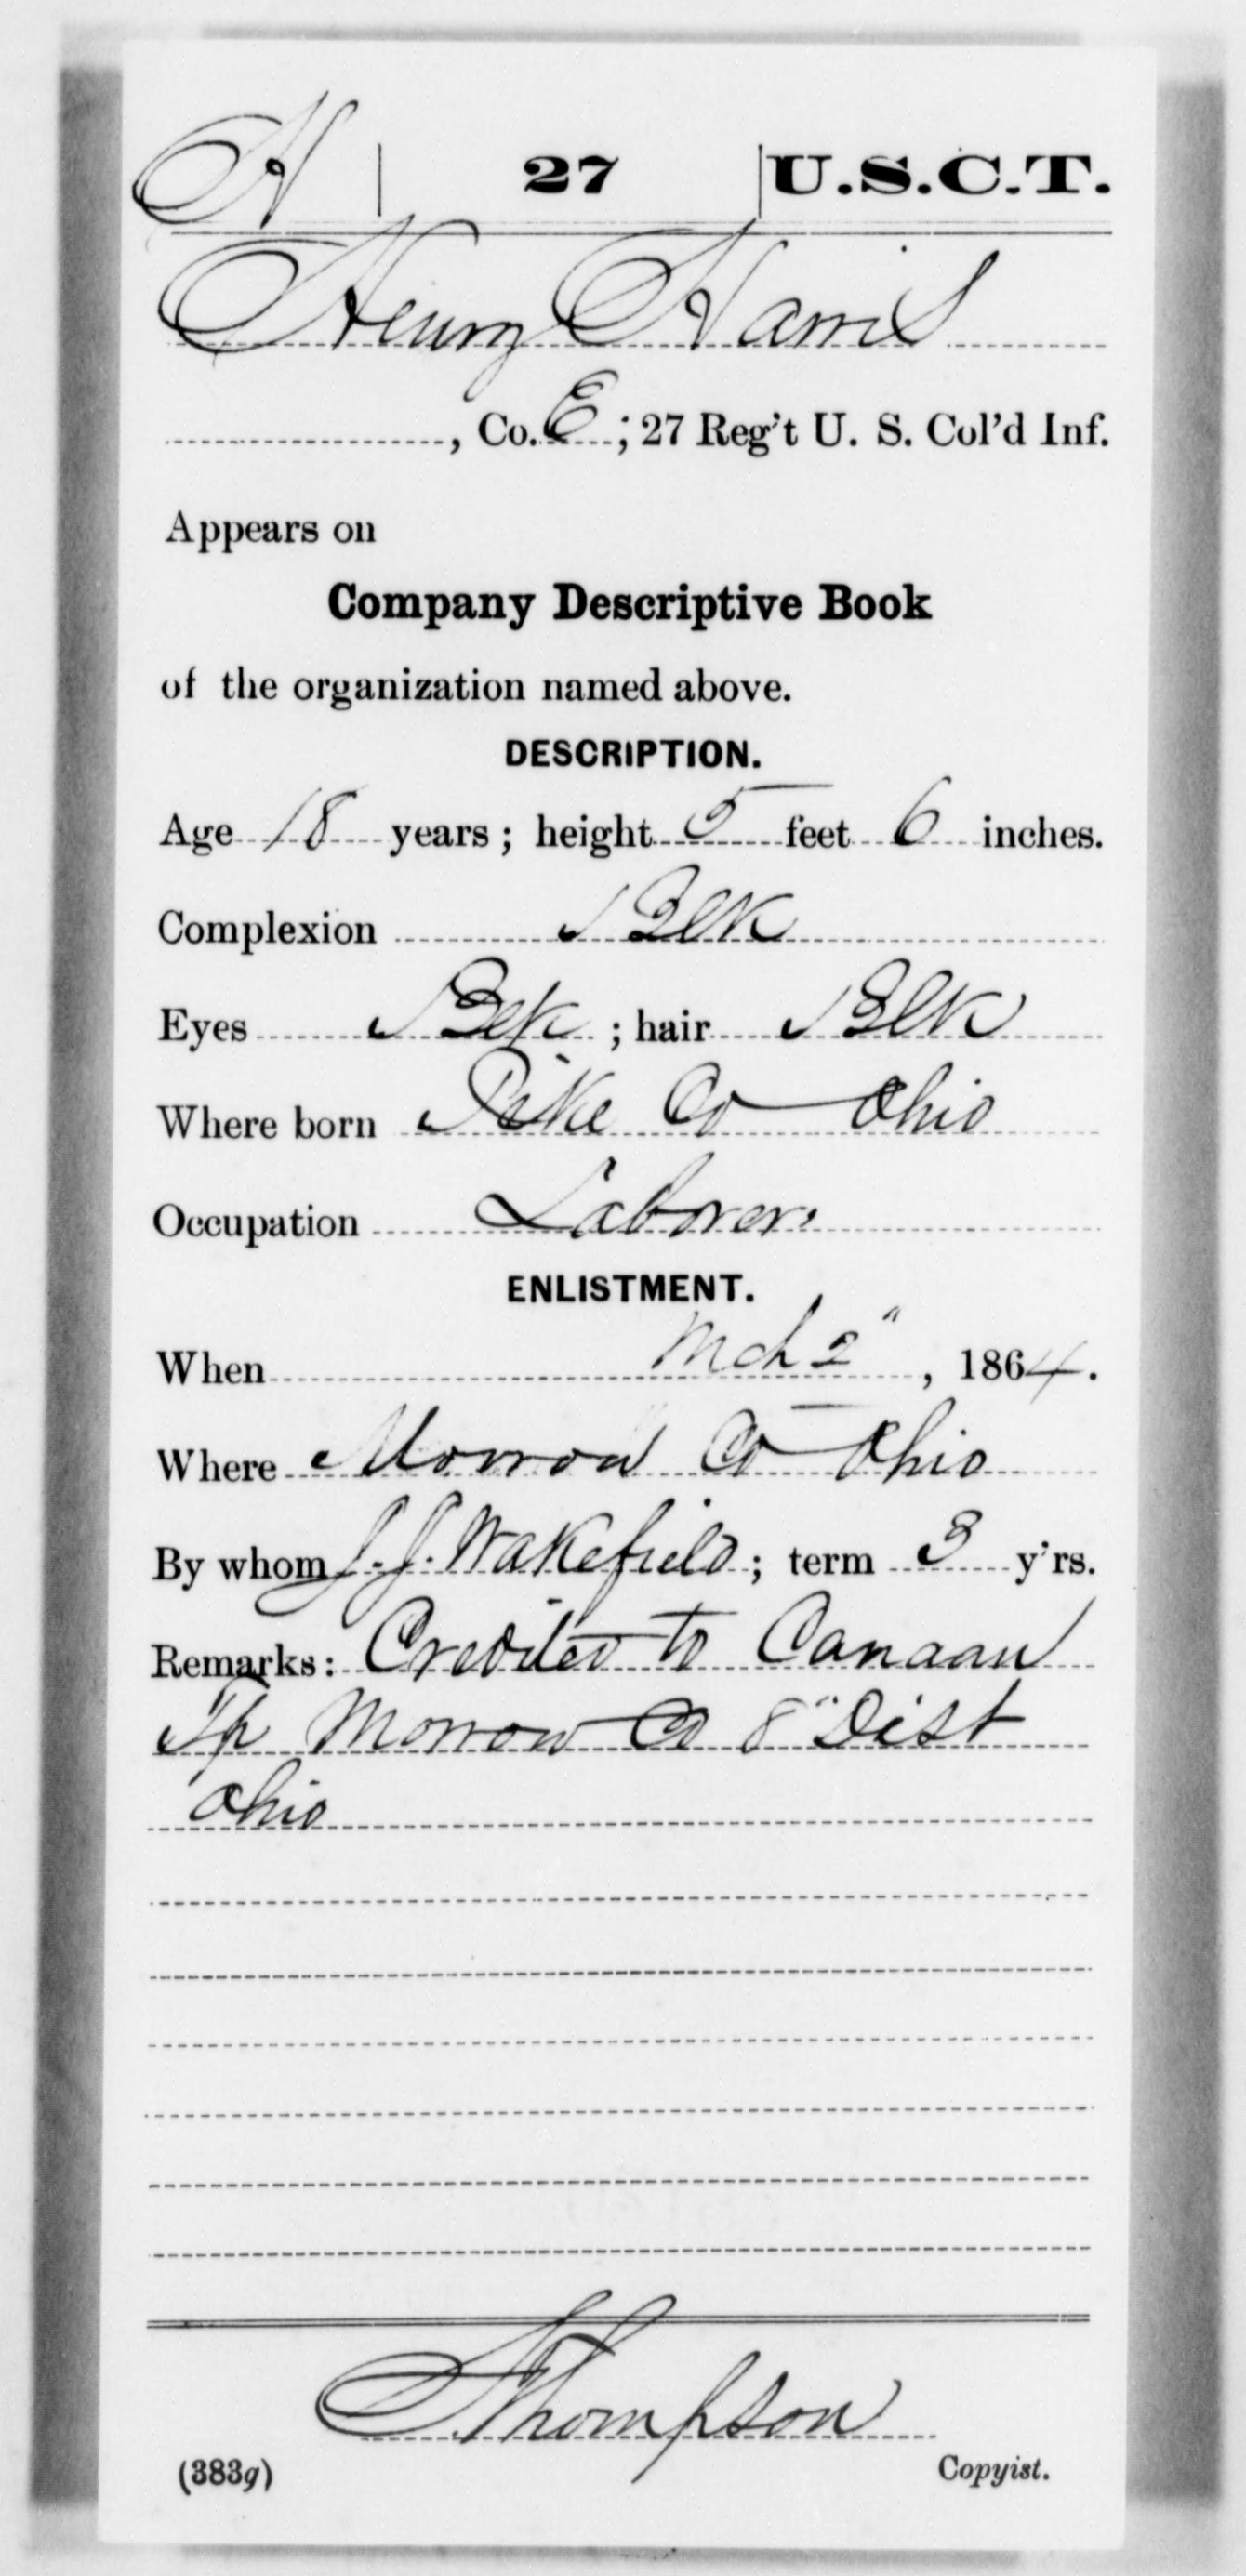 H | 27 | U.S.C.T.
Henry Harris
, Co. E ; 27 Reg't U. S. Col'd Inf.
Appears on
Company Descriptive Book
of the organization named above.
DESCRIPTION.
Age 18 years ; height 5 feet 6 inches.
Complexion Blk
Eyes Blk ; hair Blk
Where born Pike Co Ohio
Occupation Laborer
ENLISTMENT.
When Mch 2" , 1864.
Where Morrow Co Ohio
By whom J. J. Wakefield ; term 3 y'rs.
Remarks : Credited to Canaan
Tp Morrow Co 8" Dist
Ohio
Thompson
(383g) Copyist.